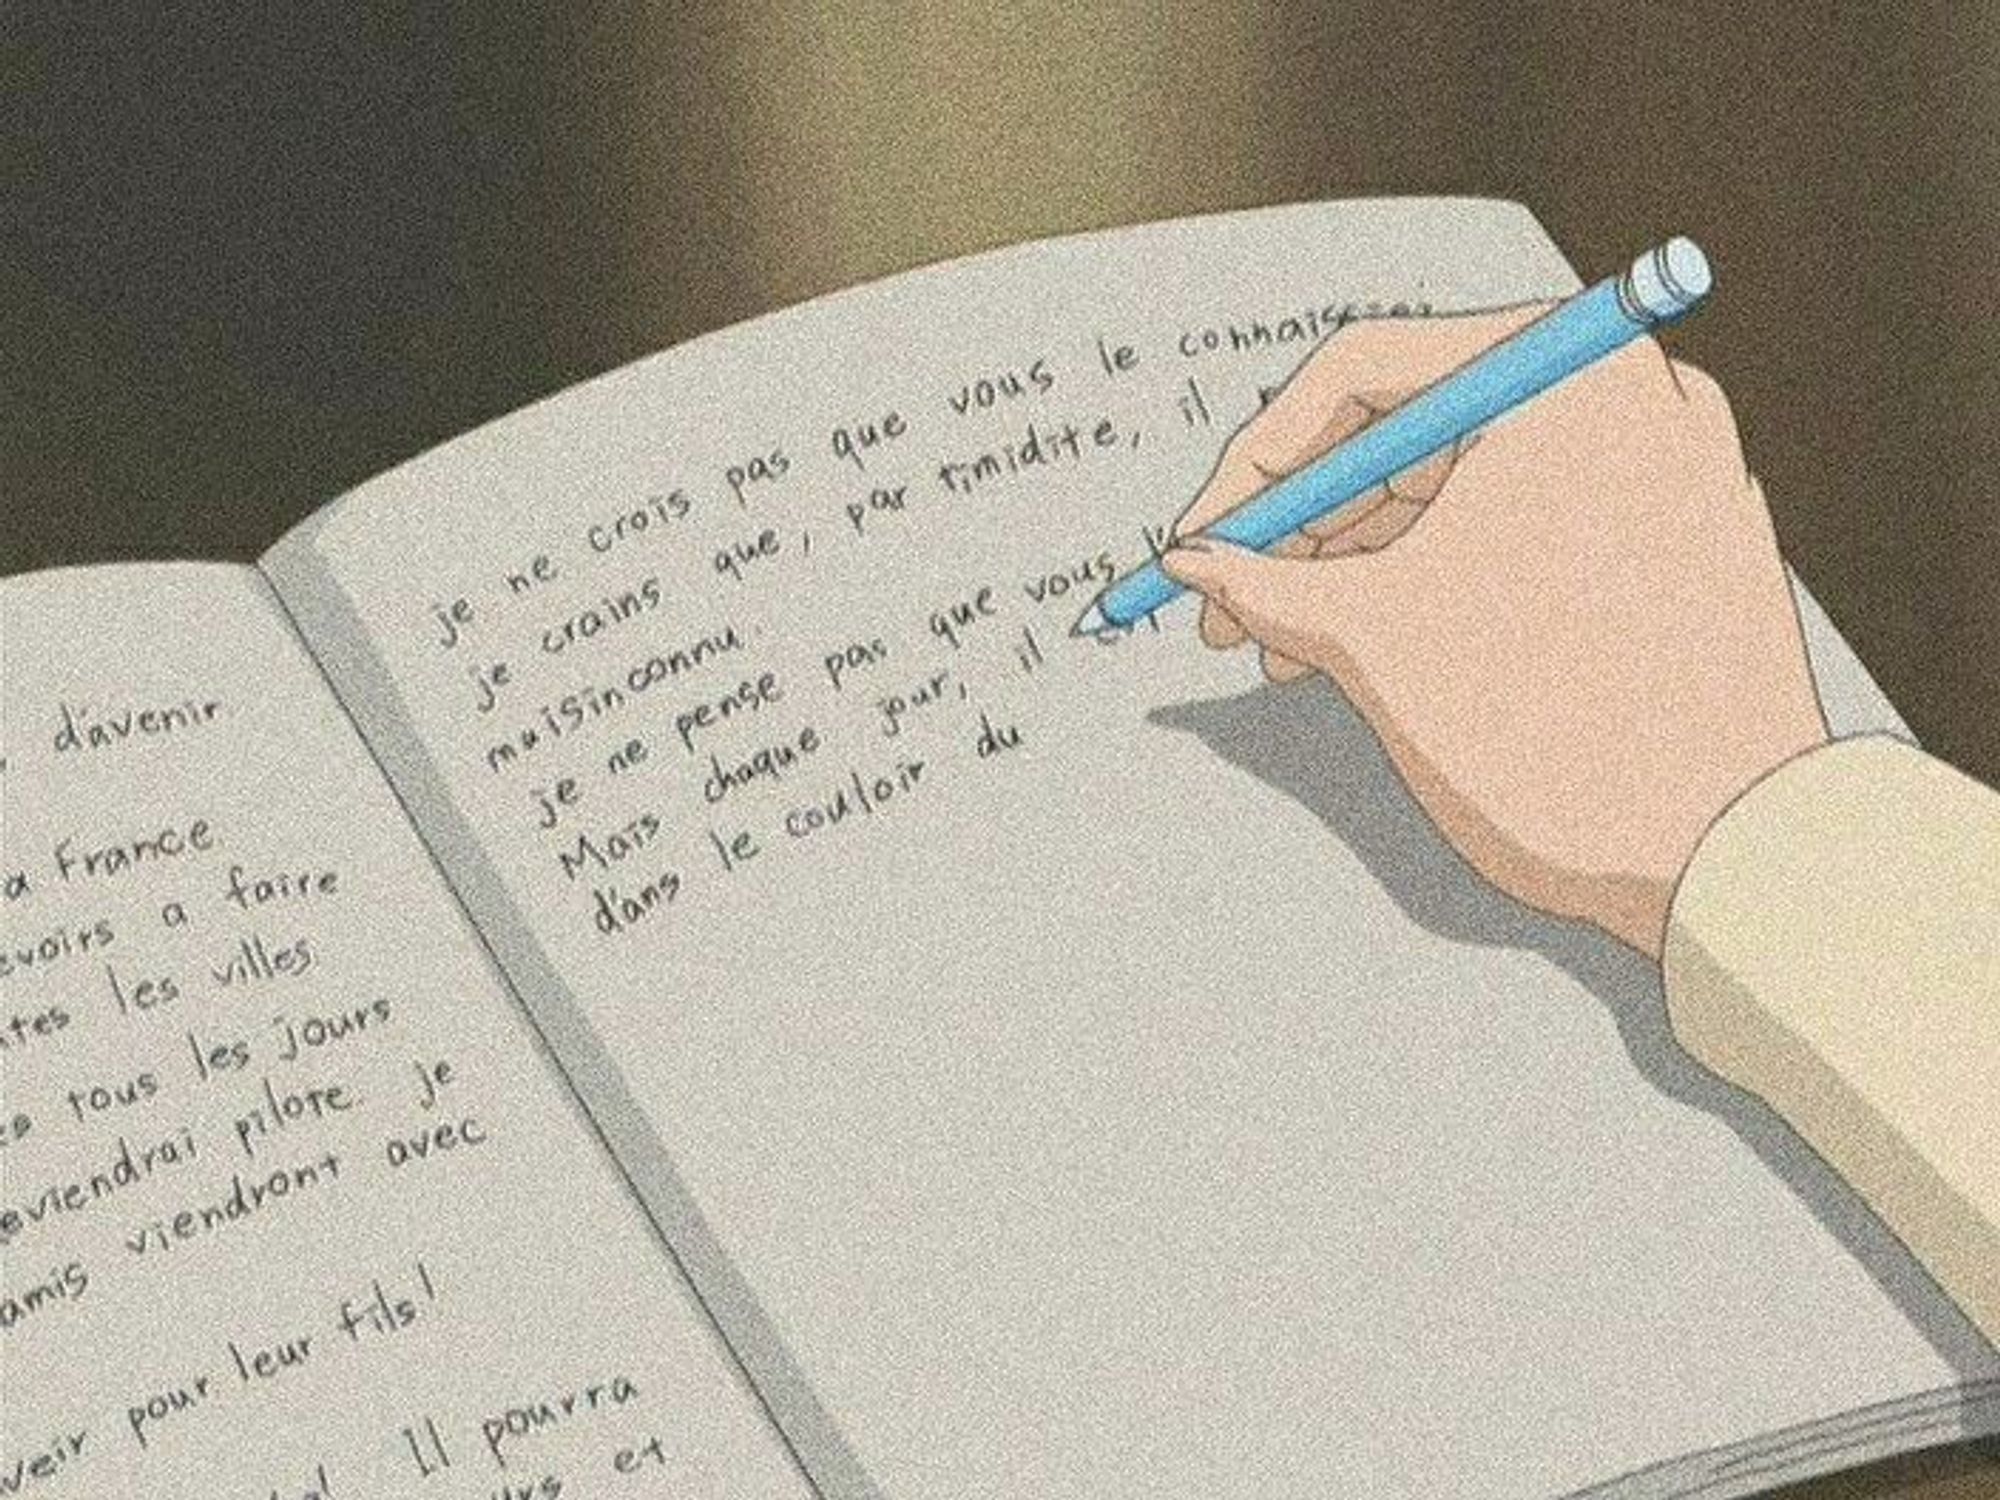 d'avenir
a France
a faire
les villes
tous les jours
pilote. je
viendront avec
amis
pour leur fils!
Il pourra
et
je ne crois pas que vous le
je crains que, par timidite, il
maisinconnu.
je ne pense pas que vous
Mais chaque jour, il
d'ans le couloir du